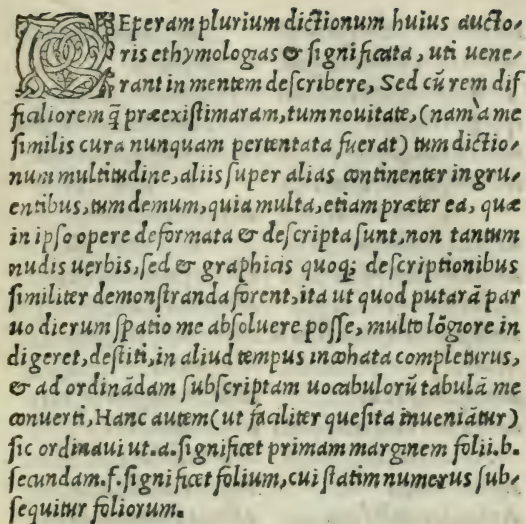 CEperam plurium dictionum huius aucto-
ris ethymologias & significata, uti uene-
rant in mentem describere, Sed cū rem dif
ficiliorem q̃ præexistimaram, tum nouitate, (nam à me
similis cura nunquam pertentata fuerat) tum dictio-
num multitudine, aliis super alias continenter ingru-
entibus, tum demum, quia multa, etiam præter ea, quæ
in ipso opere deformata & descripta sunt, non tantum
nudis uerbis, sed & graphicis quoq; descriptionibus
similiter demonstranda forent, ita ut quod putarā par
uo dierum spatio me absoluere posse, multo lōgiore in
digeret, destiti, in aliud tempus incohata completurus,
& ad ordinādam subscriptam uocabulorū tabulā me
conuerti, Hanc autem (ut faciliter quesita inueniātur)
sic ordinaui ut .a. significet primam marginem folii .b.
secundam .f. significet folium, cui statim numerus sub-
sequitur foliorum.